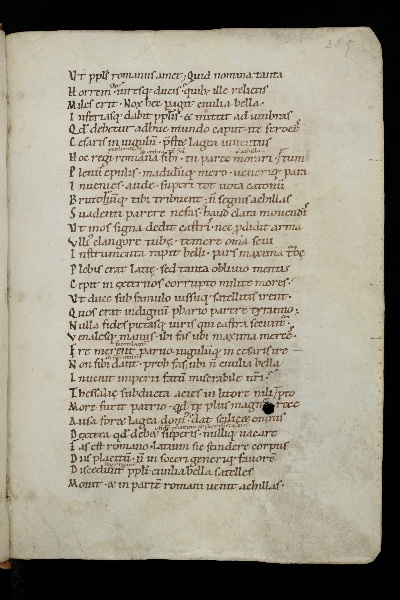 Vt pplˢ romanus amet. Quid nomina tanta
Horremˀ uiresq; ducis. quib; ille relictis
Miles erit. Nox hec pagit ciuilia bella.
Inferiasq; dabit pplis. & mittet ad umbras
Qd debetur adhuc mundo caput. ite feroces
Cesaris in iugulū. pstet lagea iuuentus
Hoc regi. romana sibi. tu parce morari.
Plenū epulis. madidūq; mero. uenerīq; para tum
Inuenies. aude. superi tot uota catonū
Brutorūq; tibi tribuent. n̄ segnis achillas
Suadenti parere nefas. haud clara mouendis
Vt mos signa dedit castris. nec pdidit arma
Vlliˀ clangore tubę. temere om̄ia seui
Instrumenta rapit belli. pars maxima turbe
Plebis erat latię. sed tanta obliuio mentes
Cepit in externos corrupto milite mores.
Vt duce sub famulo iussuq; satellitis irent.
Quos erat indignū phario parere tyranno.
Nulla fides pietasq; uiris qui castra secunt͛.
Venalesq; manus. ibi fas ubi maxima merces.
Ere merent paruo. iugulūq; in cesaris ire
Non sibi dant. proh fas ubi n̄ ciuilia bella
Inuenit imperii fatū miserabile nr̄i.
Thessalię subducta acies in litore nili
More furit patrio. qd te plus magne recepto
Ausa foret lagea dom̄ˀ. dat scilicet omnis
Dextera qd debet superis. nulliq; uacare
Fas est romano. latium sic scindere corpus
Dis placitū. n̄ in soceri generiq; fauorē
Discedunt ppli. ciuilia bella satelles
Mouit. & in partē romani uenit achillas.